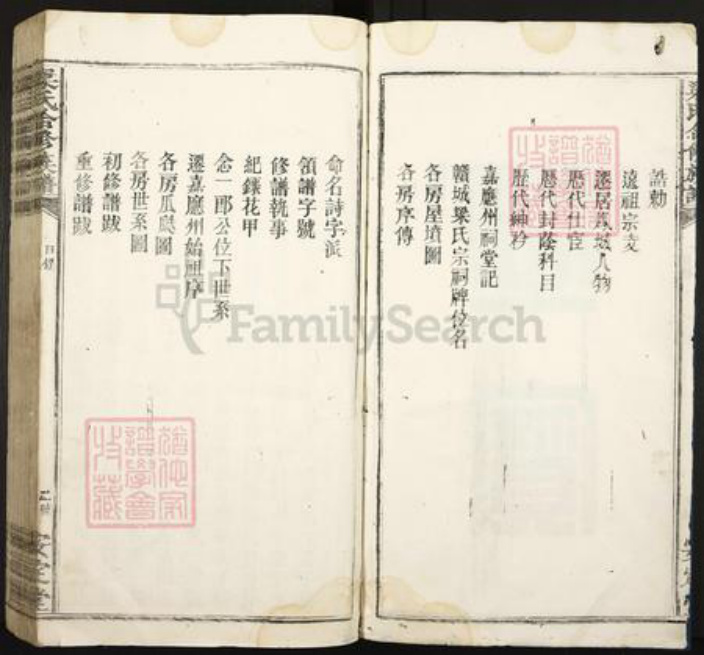 誥勅
遠祖宗支
遷居族城人物
歷代仕宦
歷代封蔭科目
歷代紳衿
嘉應州祠堂記
贛城梁氏宗祠牌位名
各房屋墳圖
各房序傳
命名詩字派
領譜字號
修譜執事
紀錄花甲
念一郎公位下世系
遷嘉應州始祖序
各房瓜瓞圖
各房世系圖
初修譜跋
重修譜跋
梁氏合修族譜
目錄
安定堂
FamilySearch